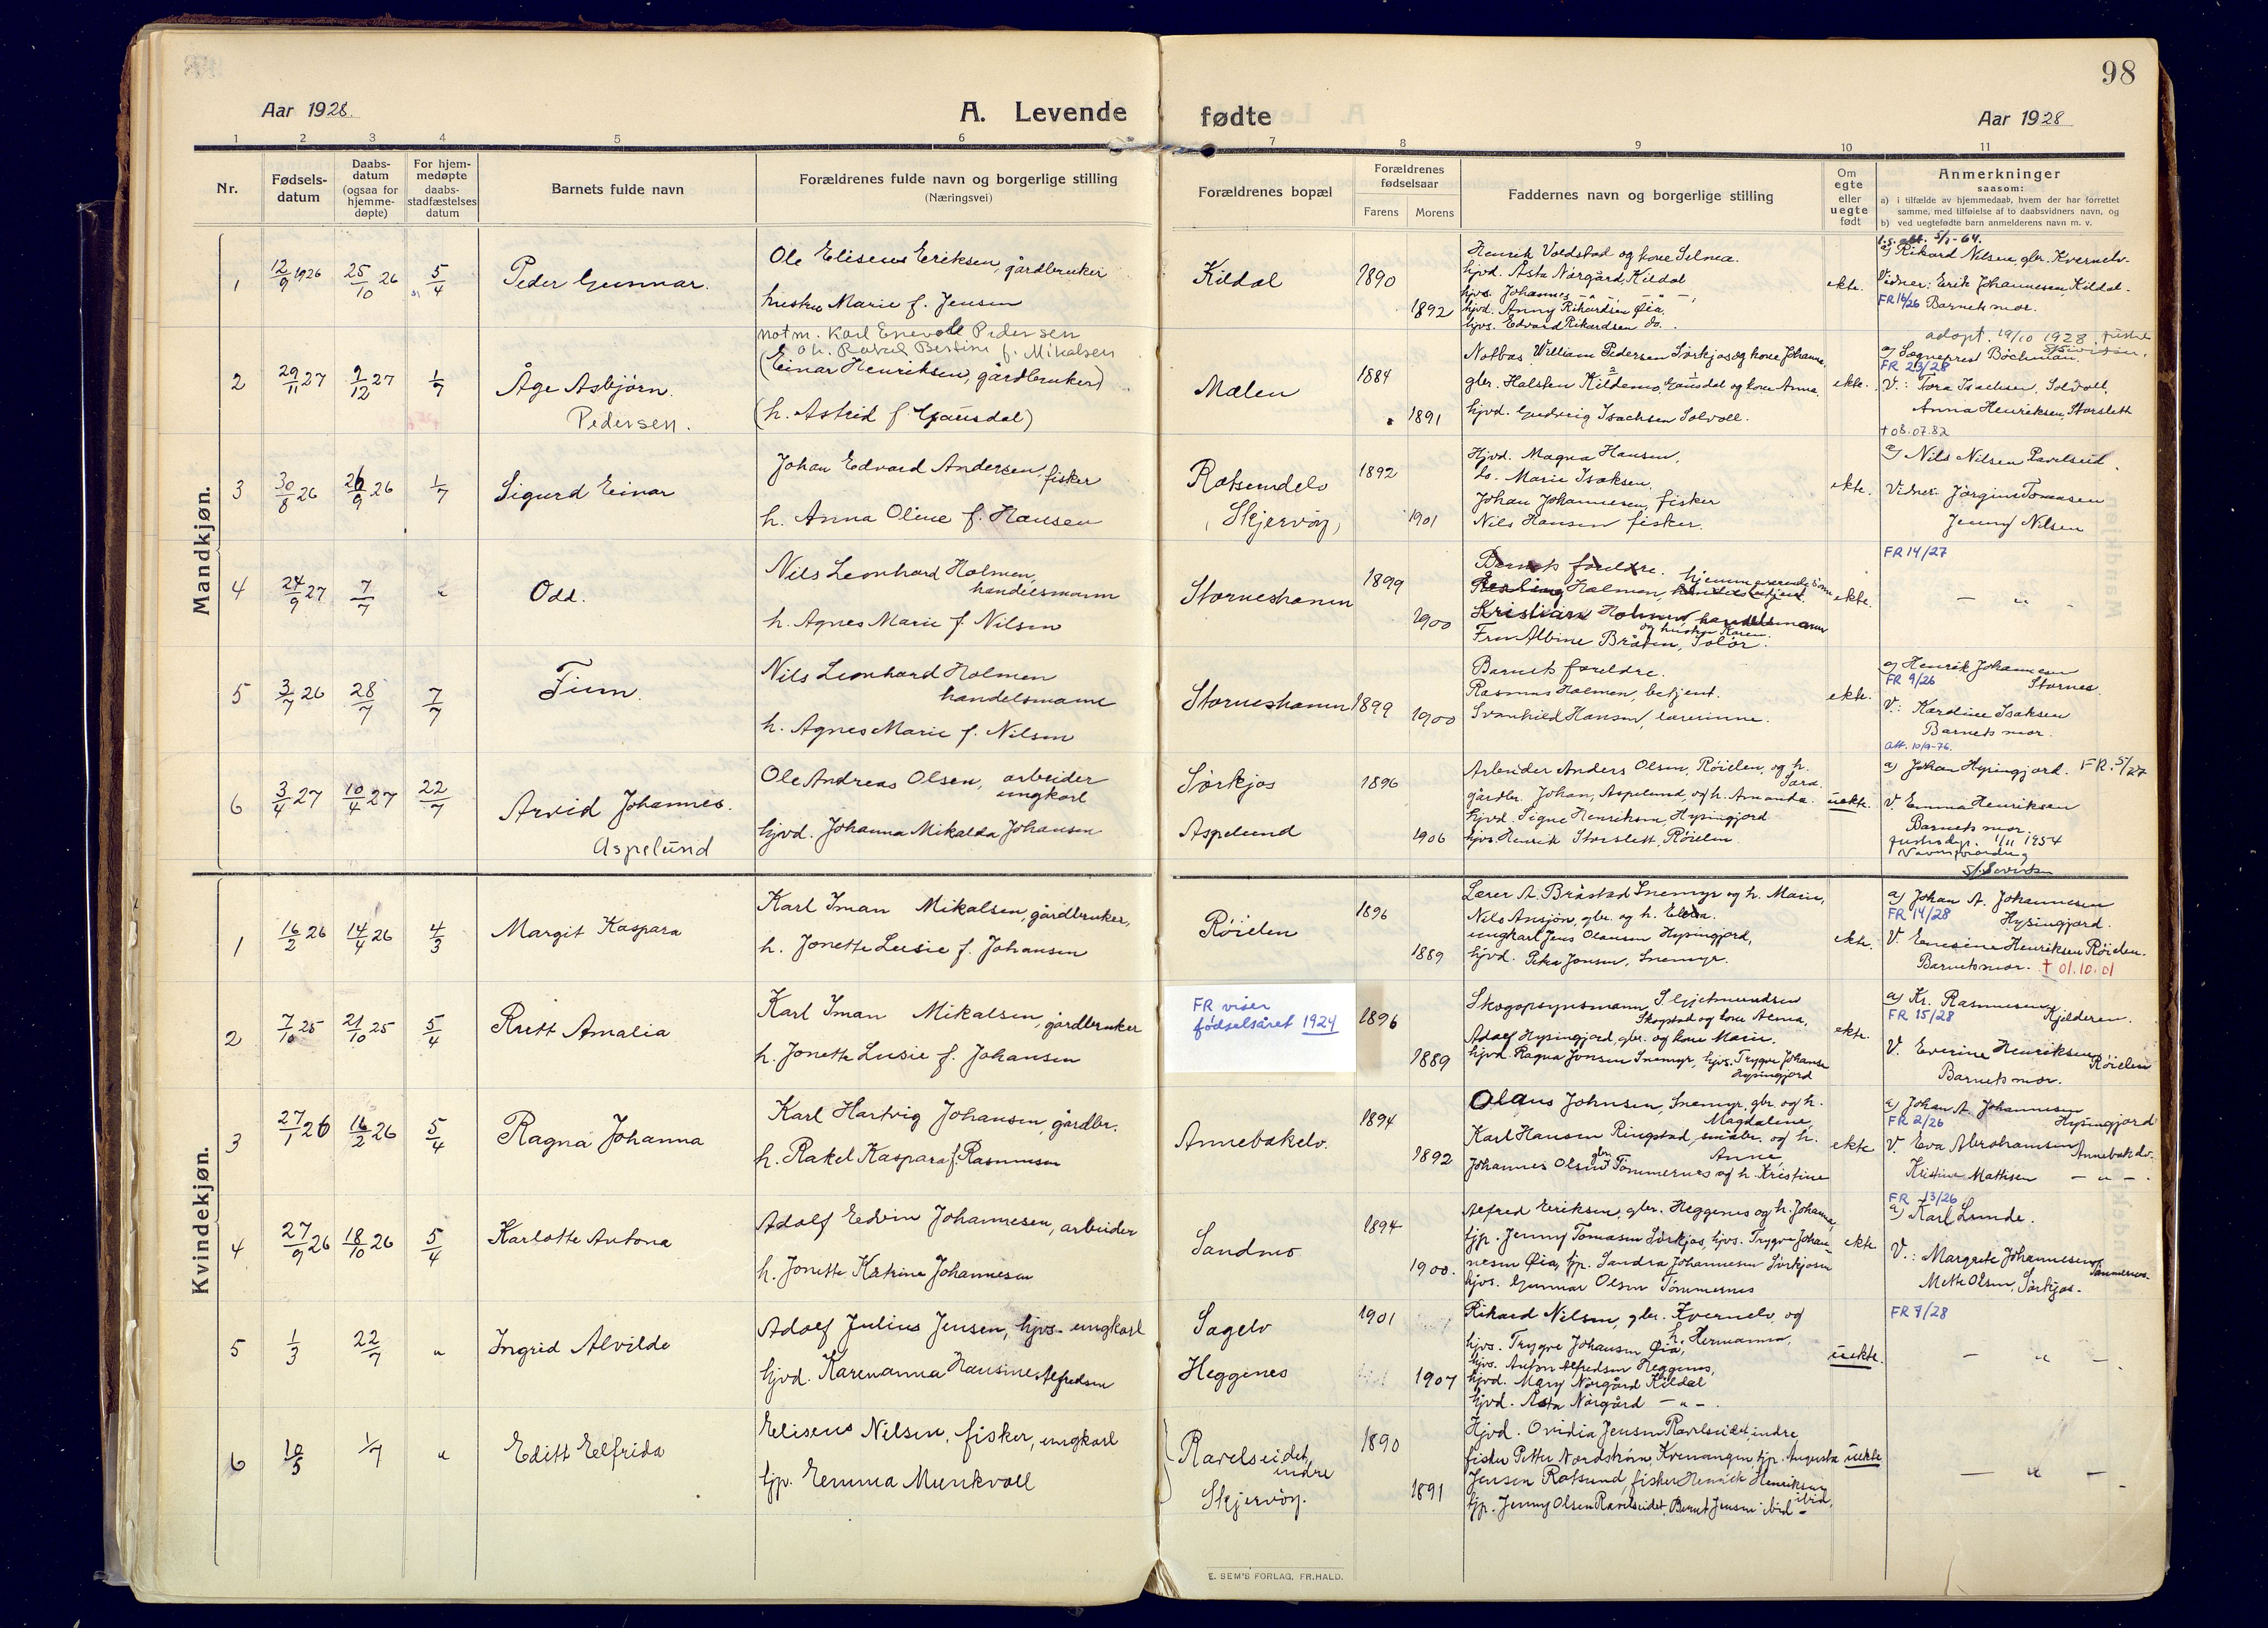 98
Aar 1928.
A. Levende
fødte
Aar 1928
1 2 3 4 5 6 7 8 9 10 11
Nr.
Fødsels-
datum
Daabs-
datum
(ogsaa for
hjemme-
døpte)
For hjem-
medøpte
daabs-
stadfæstelses
datum
Barnets fulde navn
Forældrenes fulde navn og borgerlige stilling
(Næringsvei)
Forældrenes bopæl
Forældrenes
fødselsaar
Farens Morens
Faddernes navn og borgerlige stilling
Om
egte
eller
uegte
født
Anmerkninger
saasom:
a) i tilfælde av hjemmedaab, hvem der har forrettet
samme, med tilføielse af to daabsvidners navn, og
b) ved uegtefødte barn anmelderens navn m. v.
Mandkjøn.
1 12/9 1926 25/10 26 5/4
Peder Gunnar.
Ole Eliseus Eriksen, gårdbruker
hustru Marie f. Jensen
Kildal
1890
1892
Henrik Voldstad og kone Selma.
hjvd. Asta Nørgård, Kildal
hjvs. Johannes - " -
hjvd. Anny Rikardsen Øia,
hjvs. Edvard Rikardsen do.
ekte.
5/1-64.
a) Rikard Nilsen, gbr. Kvernelv.
Vidner: Erik Johannesen, Kildal.
FR 16/26 Barnets mor.
2 29/11 27 9/12 27 1/7
Åge Asbjørn.
Pedersen.
notm. Karl Enevold Pedersen
og h. Rakel Bertine f. Mikalsen
(Einar Henriksen, gårdbruker)
(h. Astrid f. Gausdal)
Mælen
1884
1891
Notbas William Pedersen Sørkjos og kone Johanna,
gbr. Halsten Kildemo, Gausdal og kone Anna.
hjvd. Gudveig Isachsen Solvoll.
ekte.
adopt. 19/10 1928.
a) Sogneprest Bøckman.
FR 23/28
V.: Tora Isachsen, Solvoll,
Anna Henriksen, Storslett
† 08.07.82
3 30/8 26 26/9 26 1/7
Sigurd Einar
Johan Edvard Andersen, fisker
h. Anna Oline f. Hansen
Rotsundelv
(Skjervøy)
1892
1901
Hjvd. Magna Hansen,
do. Marie Isaksen,
Johan Johannesen, fisker
Nils Hansen fisker.
ekte.
a) Nils Nilsen Ravelseid.
Vidner: Jørgine Tomasen
Jenny Nilsen
4 24/9 27 7/7 "
Odd.
Nils Leonhard Holmen,
handelsmann
h. Agnes Marie f. Nilsen
Storneshamn
1899
1900
Barnets foreldre.
Holmen, hjemmeværende sønn
Kristian Holmen, handelsmann
og hustru Karen.
Fru Albine Bråten, Solør.
ekte.
FR 14/27
- " -
5 3/7 26 28/7 7/7
Finn.
Nils Leonhard Holmen
handelsmann
h. Agnes Marie f. Nilsen
Storneshamn
1899
1900
Barnets foreldre.
Rasmus Holmen, betjent.
Svanhild Hansen, lærerinne.
ekte.
a) Henrik Johannesen
FR 9/26 Stornes.
V.: Karoline Isaksen
Barnets mor.
att. 10/9-76.
6 3/4 27 10/4 27 22/7
Arvid Johannes.
Aspelund
Ole Andreas Olsen, arbeider
ungkarl
hjvd. Johanna Mikalda Johansen
Sørkjos
Aspelund
1896
1906
Arbeider Anders Olsen, Røielen, og h.
Sara.
gårdbr. Johan, Aspelund, og h. Amanda.
hjvd. Signe Henriksen, Hysingjord
hjvs. Henrik Storslett, Røielen
uekte.
a) Johan Hysingjord. FR. 5/27
V. Emma Henriksen
Barnets mor.
1/11 1954
Kvindekjøn.
1 16/2 26 14/4 26 4/3
Margit Kaspara
Karl Iman Mikalsen, gårdbruker,
h. Jonette Lusie f. Johansen
Røielen
1896
1889
Lærer A. Bråstad Snemyr og h. Marie,
Nils Ansjøn, gbr. og h. Elena.
ungkarl Jens Olausen Hysingjord,
hjvd. Petra Jensen, Snemyr.
ekte.
a) Johan A. Johannesen
FR 14/28 Hysingjord.
V. Emesine Henriksen Røielen.
Barnets mor. † 01.10.01
2 7/10 25 21/10 25 5/4
Rutt Amalia
Karl Iman Mikalsen, gårdbruker
h. Jonette Lusie f. Johansen
FR viser
fødselsåret 1924
1896
1889
Skogopsynsmann S. Gjetmundsen
Skogstad og kone Alma,
Adolf Hysingjord, gbr. og kone Marie.
hjvd. Ragna Jensen Snemyr, hjvs. Trygve Johansen
Hysingjord
ekte.
a) Kr. Rasmussen
FR 15/28 Kjelderen.
V. Everine Henriksen
Røielen
Barnets mor.
3 27/1 26 16/2 26 5/4
Ragna Johanna
Karl Hartvig Johansen, gårdbr.
h. Rakel Kaspara f. Rasmussen
Annebakelv.
1894
1892
Olaus Johnsen, Snemyr, gbr. og h.
Magdalene,
Karl Hansen Ringstad, småbr. og h.
Anne,
Johannes Olsen gbr. Tømmernes og h. Kristine
ekte
a) Johan A. Johannesen
FR 2/26 Hysingjord
V. Eva Abrahamsen Annebakelv.
Kristine Mathisen - " -.
4 27/9 26 18/10 26 5/4
Karlotte Antona
Adolf Edvin Johannesen, arbeider
h. Jonette Katrine Johannesen
Sandmo
1894
1900.
Alfred Eriksen, gbr. Heggenes og h. Johanna,
tjp. Jenny Tomasen Sørkjos, hjvs. Trygve Johan-
nesen Øia, tjp. Sandra Johannesen Sørkjosen
hjvs. Gunnar Olsen Tømmernes
ekte
FR 13/26
a) Karl Lunde.
V.: Margrete Johannesen
Tømmernes.
Mette Olsen, Sørkjos.
5 1/3 22/7 "
Ingrid Alvilde
Adolf Julius Jensen, hjvs. ungkarl
hjvd. Karenanna Hansine Alfredsen
Sagelv
Heggenes
1901
1907
Rikard Nilsen, gbr. Kvernelv og
h. Hermanna,
hjvs. Trygve Johansen Øia,
hjvs. Anton Alfredsen Heggenes,
hjvd. Mary Nørgård Kildal
hjvd. Asta Nørgård - " -.
uekte.
FR 7/28
- " -
6 10/5 1/7 "
Editt Elfrida
Eliseus Nilsen, fisker, ungkarl
tjp. Emma Munkvoll
Ravelseidet,
indre
Skjervøy.
1890
1891
Hjvd. Ovidia Jensen Ravelseidet indre
fisker Petter Nordstrøm, Kvenangen, tjp. Augusta
Jensen Rotsund, fisker Henrik Henriksen
ibid,
tjp. Jenny Olsen Ravelseidet, Bernt Jensen ibid -
uekte
- " -
E. SEM'S FORLAG, FR.HALD.